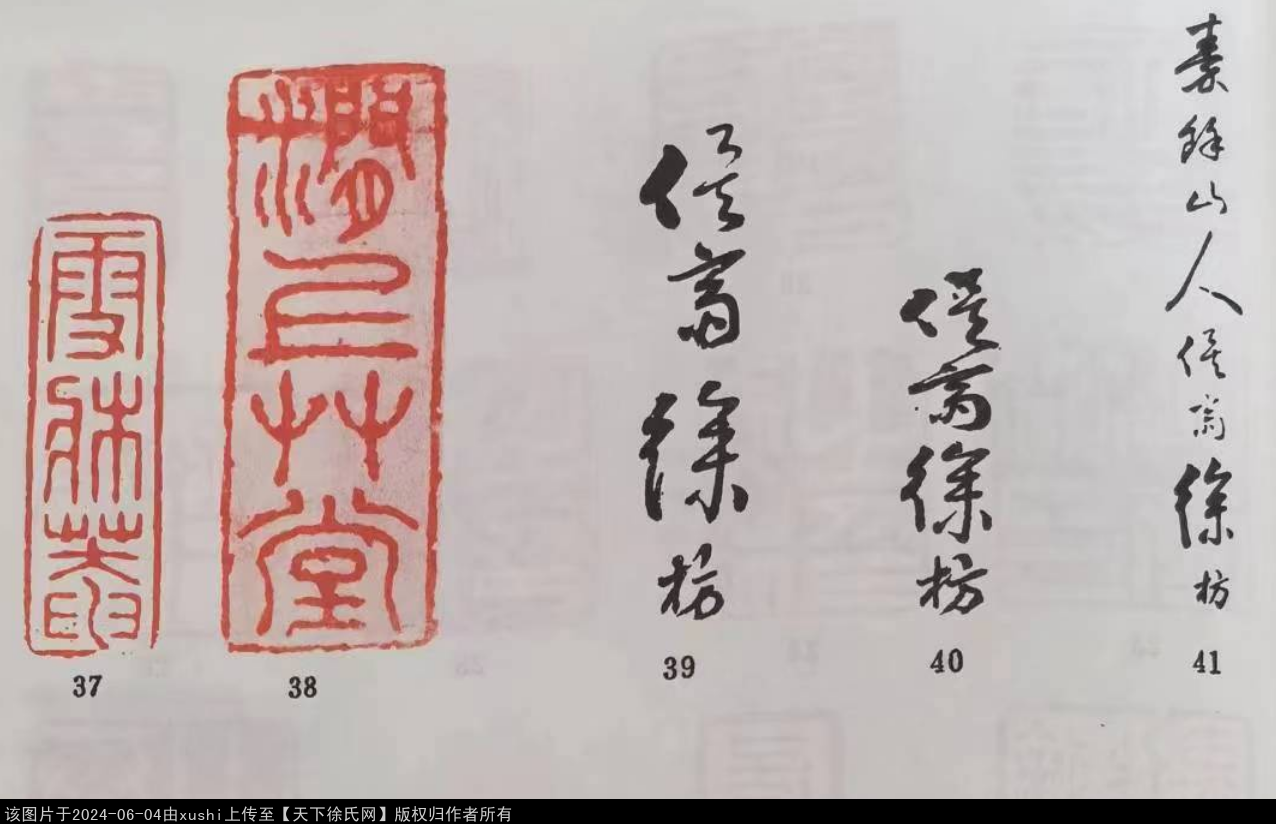 雪牀菴
37
澗上艸堂
38
俟齋徐枋
39
俟齋徐枋
40
秦餘山人俟齋徐枋
41
该图片于2024-06-04由xushi上传至【天下徐氏网】版权归作者所有